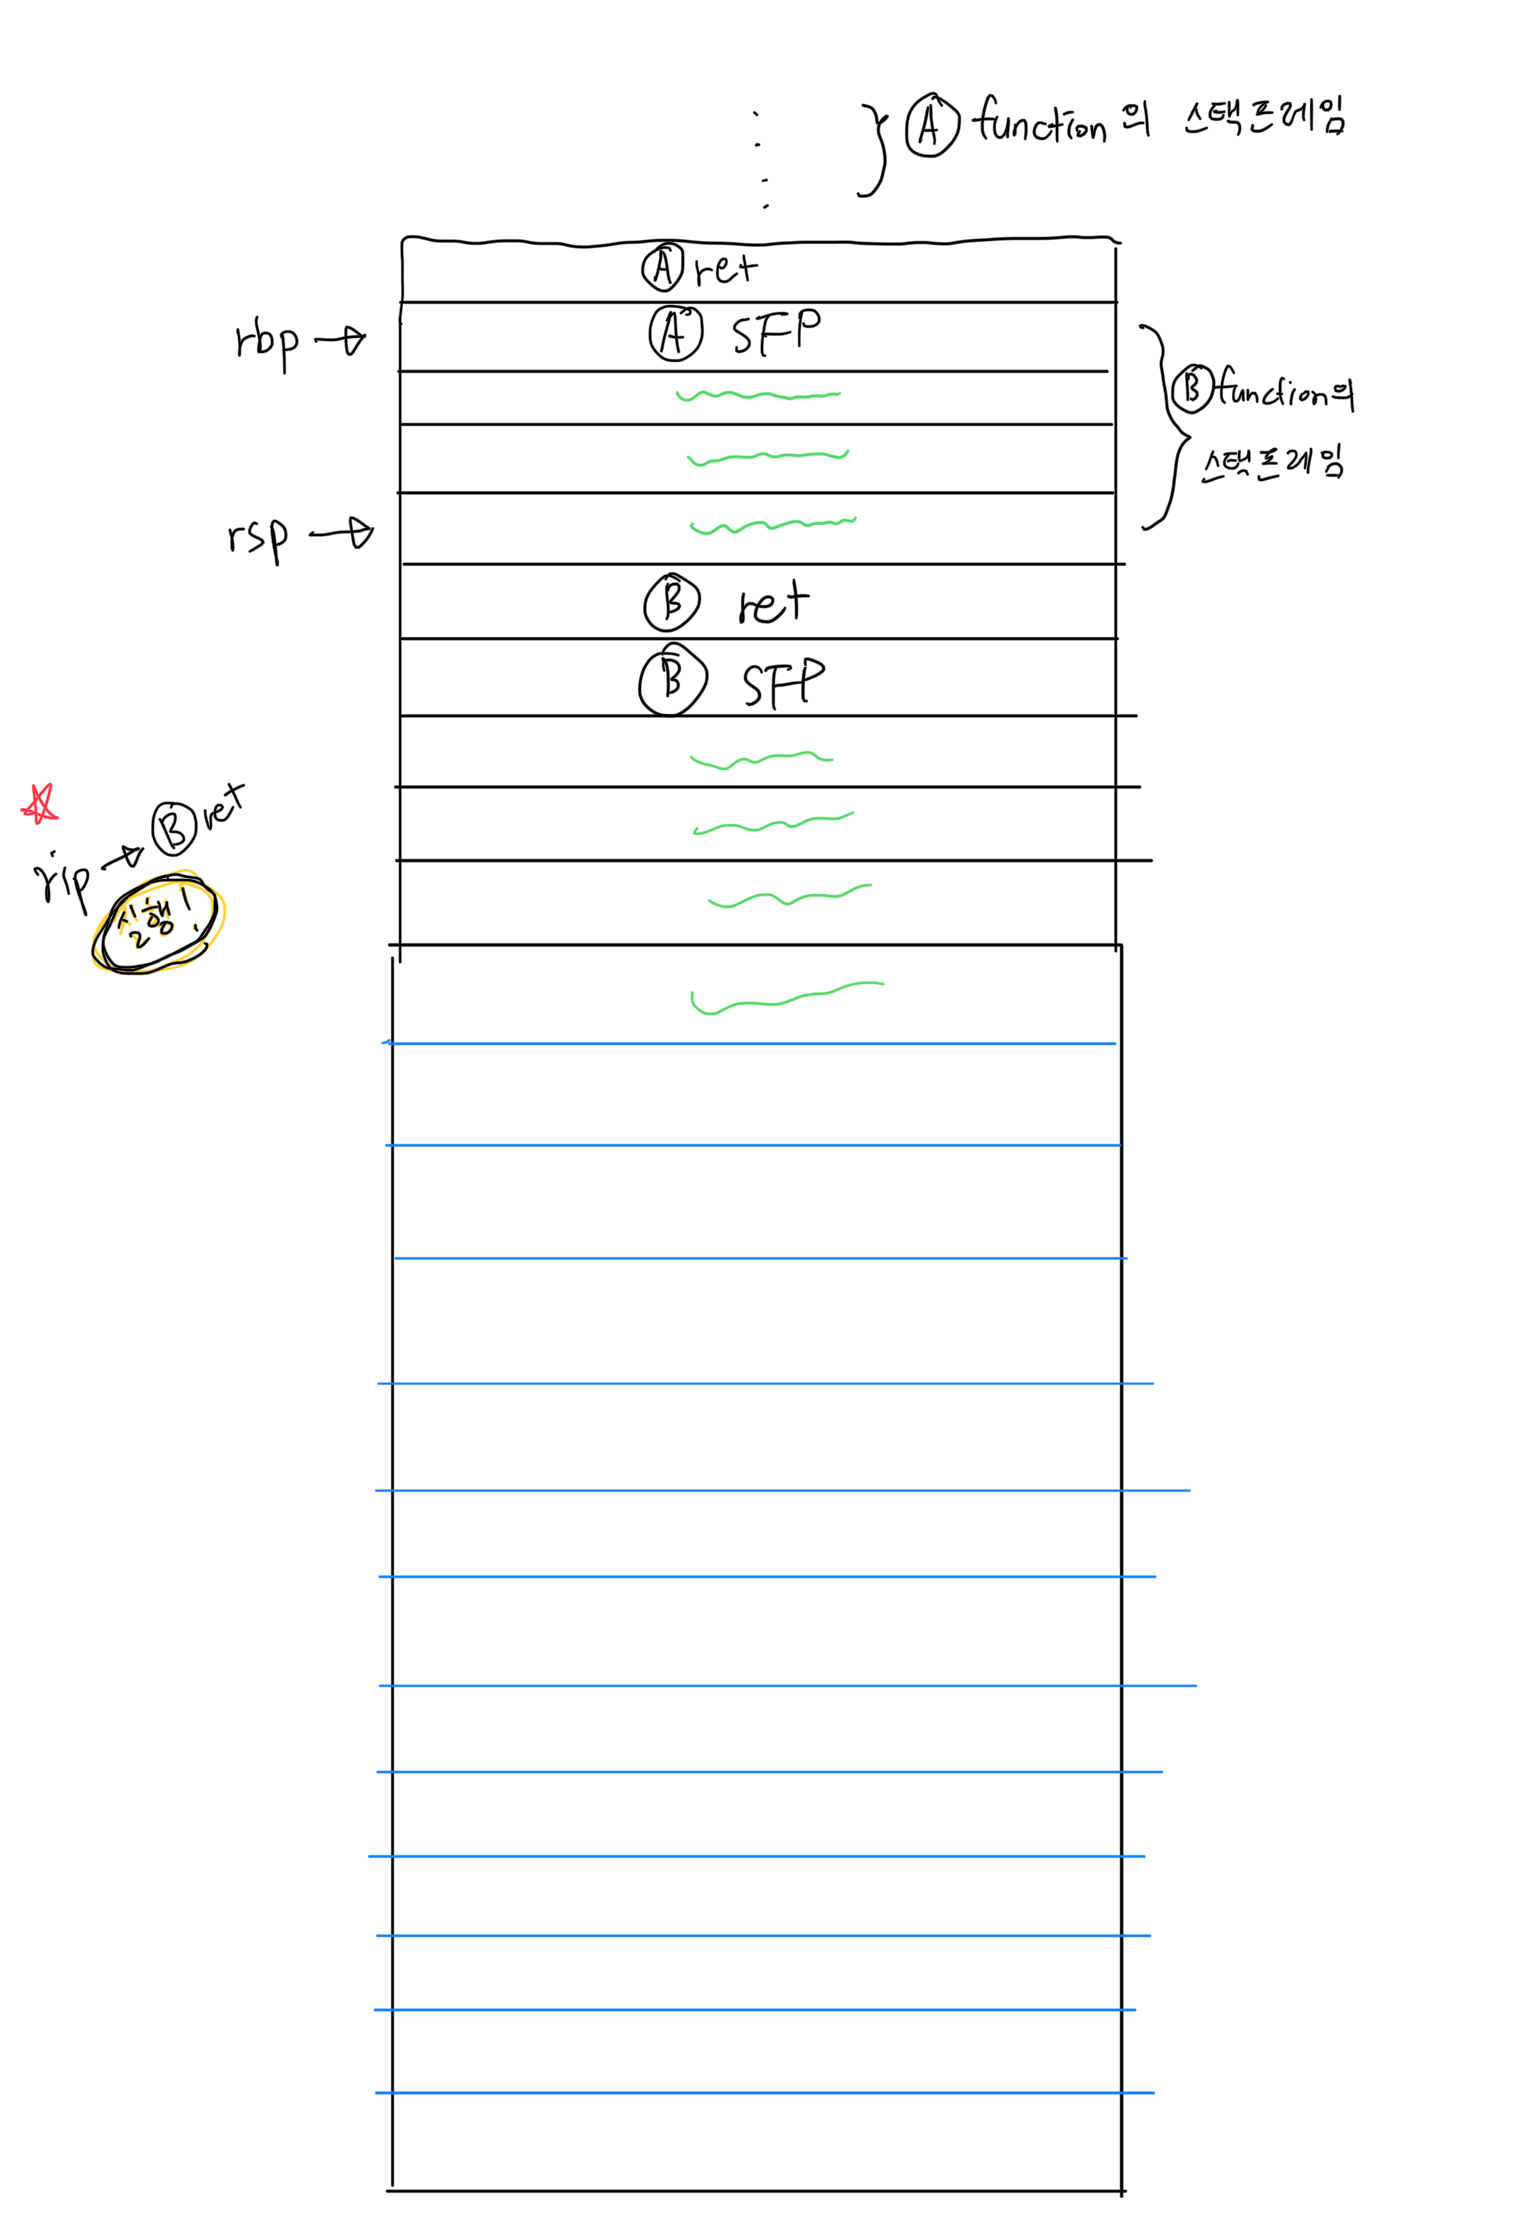 Ⓐ function의 스택프레임
Ⓐ ret
rbp → Ⓐ SFP
Ⓑ function의
스택프레임
rsp →
Ⓑ ret
Ⓑ SFP
rip → Ⓑ ret
실행!